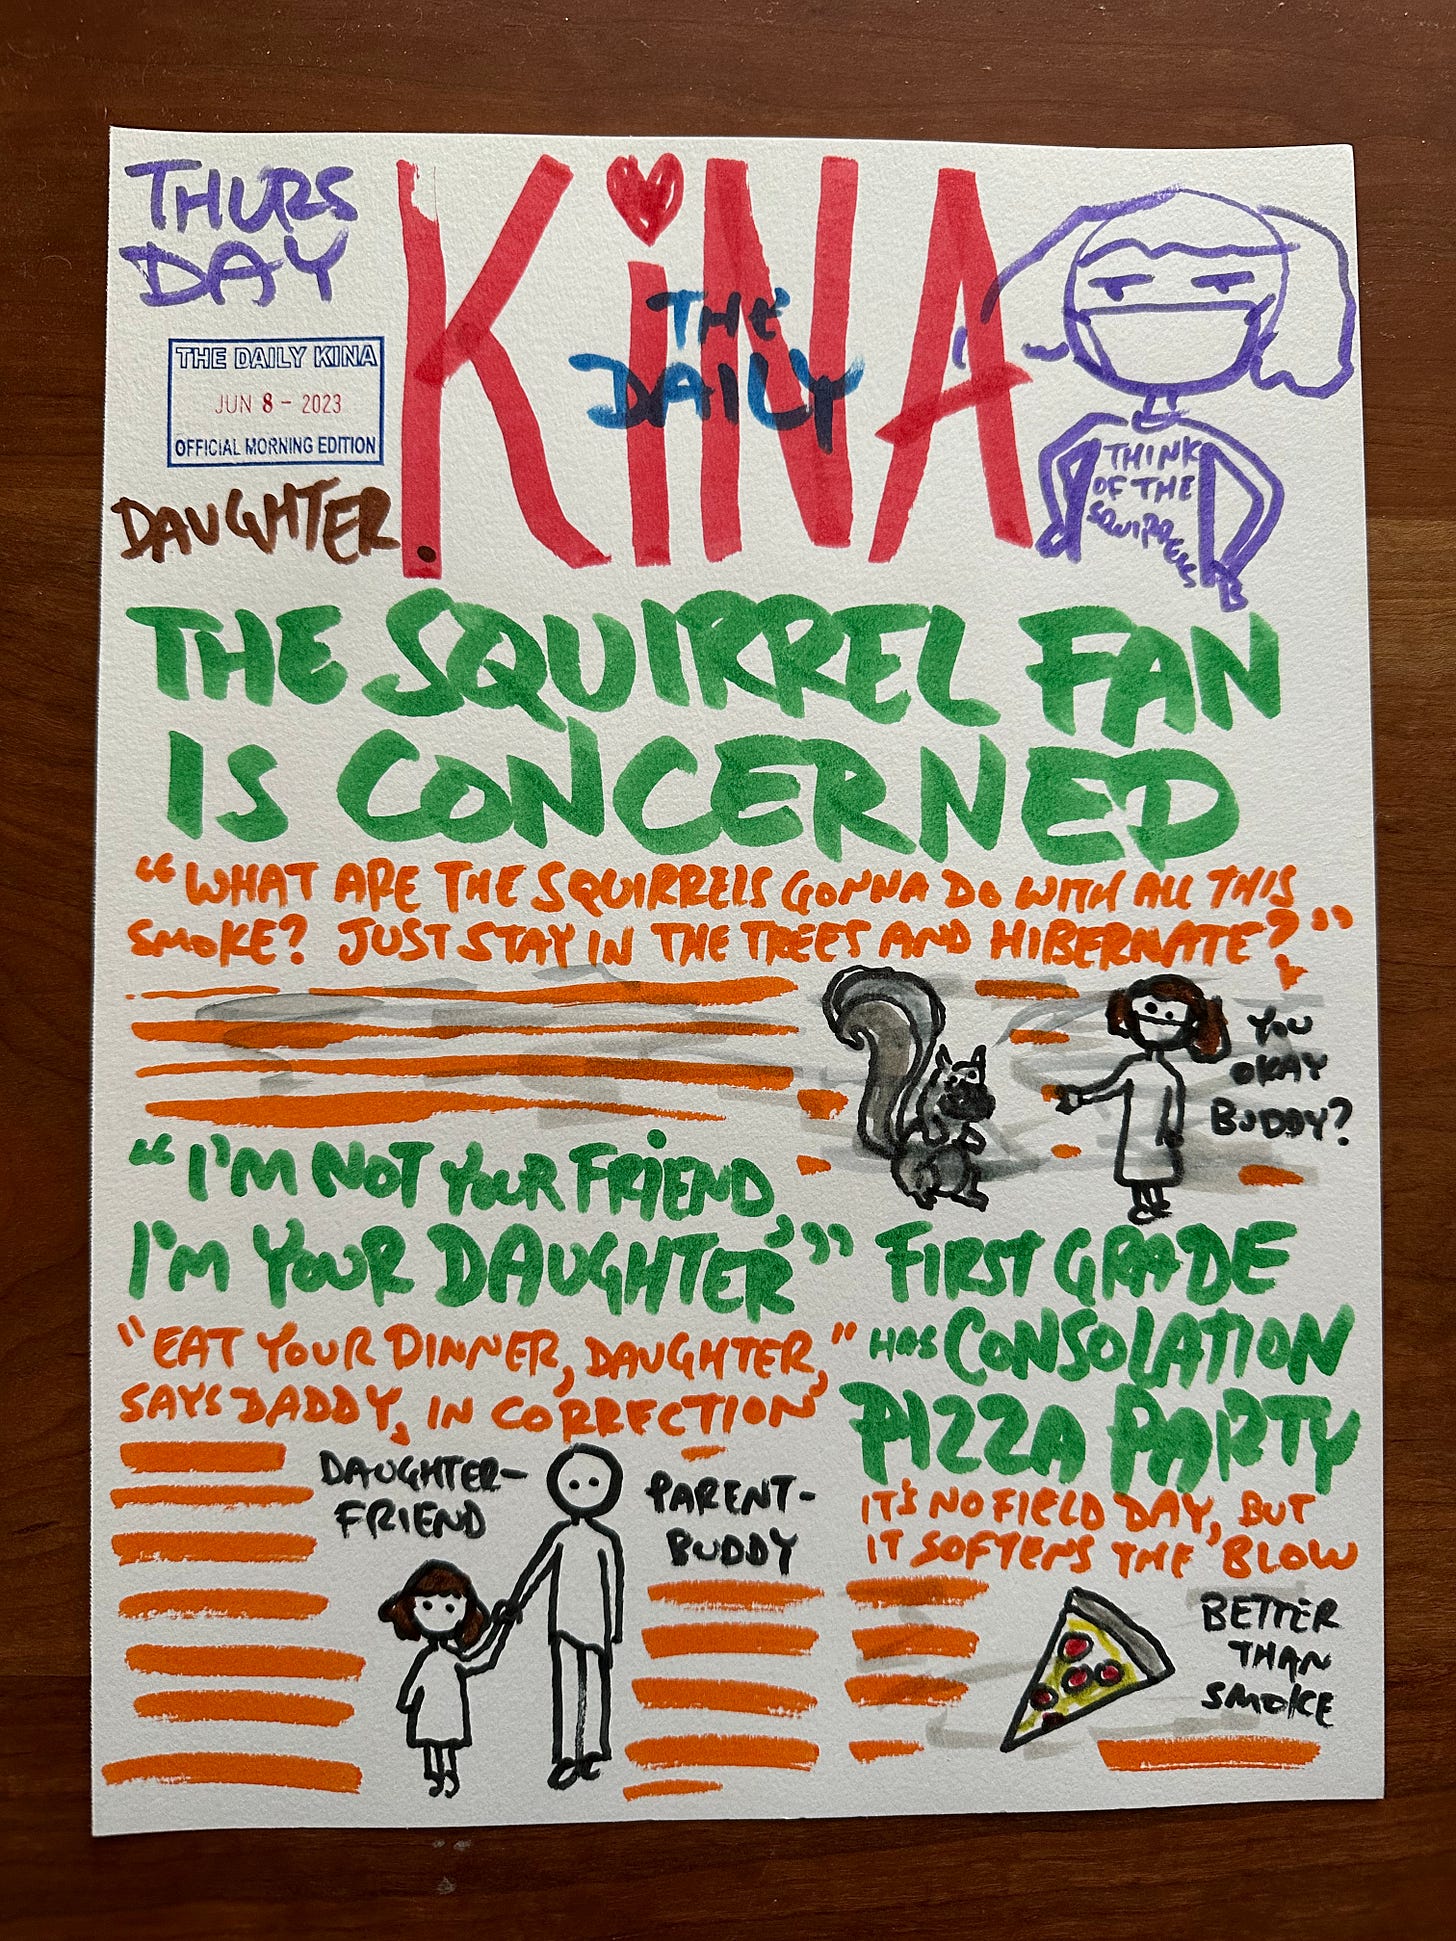 THURS
DAY
THE DAILY KINA
JUN 8 - 2023
OFFICIAL MORNING EDITION
DAUGHTER.
KiNA
THE
DAILY
THINK
OF THE
SQUIRRELS
THE SQUIRREL FAN
IS CONCERNED
"WHAT ARE THE SQUIRRELS GONNA DO WITH ALL THIS
SMOKE? JUST STAY IN THE TREES AND HIBERNATE?"
YOU
OKAY
BUDDY?
"I'M NOT YOUR FRiEND,
I'M YOUR DAUGHTER,"
"EAT YOUR DINNER, DAUGHTER,"
SAYS DADDY, IN CORRECTION
DAUGHTER-
FRIEND
PARENT-
BUDDY
FIRST GRADE
HAS CONSOLATION
PIZZA PARTY
IT'S NO FIELD DAY, BUT
IT SOFTENS THE BLOW
BETTER
THAN
SMOKE